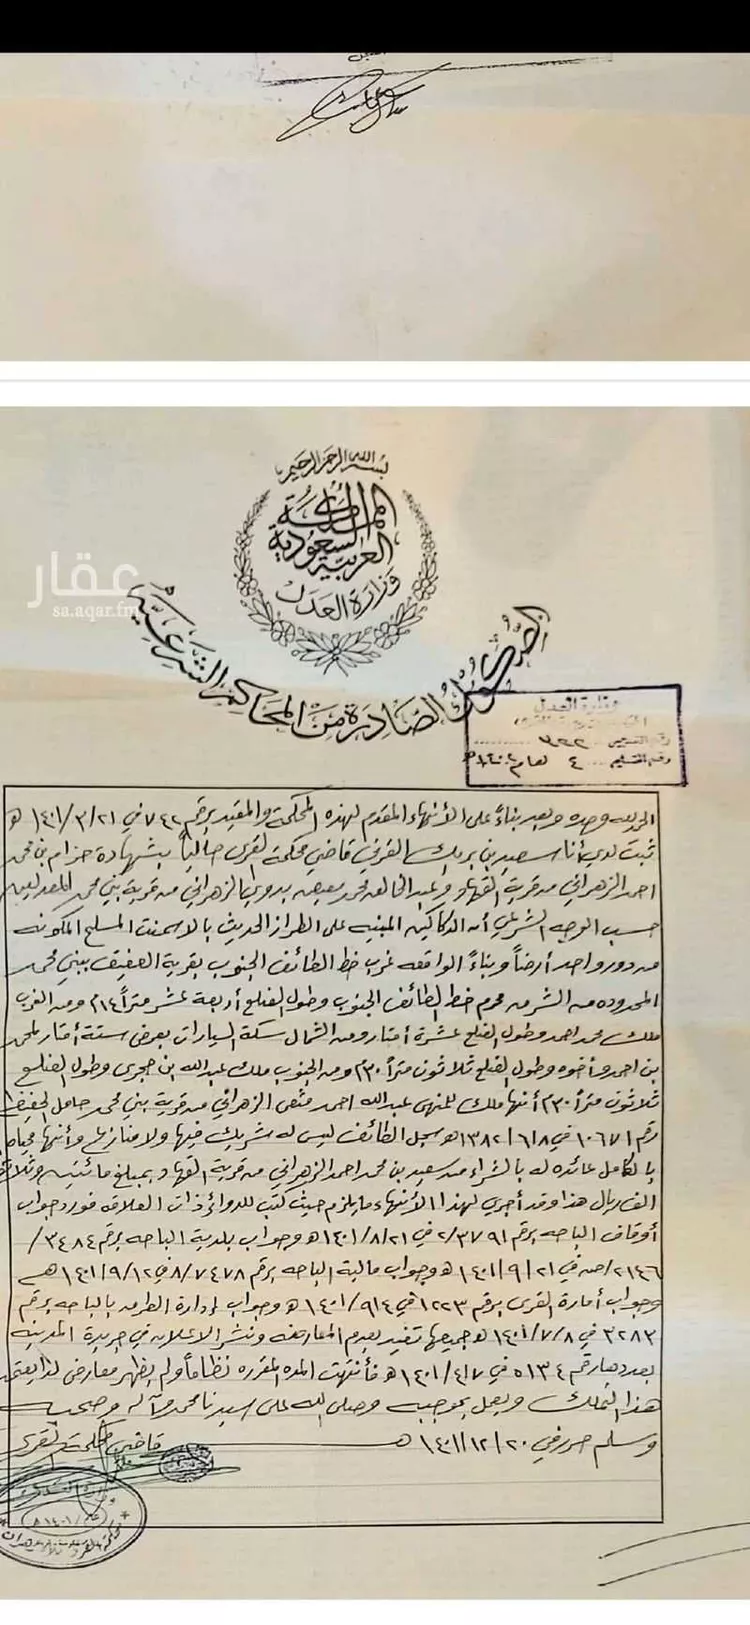 بسم الله الرحمن الرحيم
المملكة
العربية السعودية
وزارة العدل
الصكوك الصادرة من المحاكم الشرعية
عقار
sa.aqar.fm
وزارة العدل
رقم التسجيل ... ٣٢٢
الحمد لله وحده وبعد بناءً على الأنهاء المقدم لهذه المحكمة والمقيد برقم ٧٤٢ في ١٤٠١/٣/٢١ هـ
ثبت لدي أنا سعيد بن بريك القرني قاضي محكمة القرى حالياً بشهادة حزام بن محمد
احمد الزهراني من قرية القهاد وعبد الخالق محمد بدوي الزهراني من قرية بني محمد المعدلين
حسب الوجه الشرعي أن الدكاكين المبنيه على الطراز الحديث بالاسمنت المسلح المكونه
من دور واحد أرضاً وبناءً الواقعه غرب خط الطائف الجنوب بقرية العقيق ببني محمد
المحدوده من الشرق محرم خط الطائف الجنوب وطول الضلع أربعة عشر متراً ١٤م ومن الغرب
ملك محمد احمد وطول الضلع عشرة أمتار ومن الشمال سكة السيارات بعرض ستة أمتار لمحمد
بن احمد وأخوه وطول الضلع ثلاثون متراً ٣٠م ومن الجنوب ملك عبد الله ابن حجري وطول الضلع
ثلاثون متراً ٣٠م أنها ملك للمنهي عبد الله احمد الزهراني من قرية بني محمد حامل لحفيظة
رقم ١٠٦٧١ في ١٣٨٢/٦/٨ هـ سجل الطائف ليس له شريك فيها ولا منازع وأنها
بالكامل عائده له بالشراء من سعيد بن محمد احمد الزهراني من قرية القهاد بمبلغ مائتين وثلاثة
الف ريال هذا وقد أجري لهذا الأنهاء ما يلزم حيث كتب للدوائر ذات العلاقه فورد جواب
أوقاف الباحه برقم ٢/٣٧٩١ في ١٤٠١/٨/٢١ هـ وجواب بلدية الباحه برقم ٣٤٨٤/
٢١٤٦/ص في ١٤٠١/٩/٢١ هـ وجواب مالية الباحه برقم ٨/٧٤٧٨ في ١٤٠١/٩/١٢ هـ
وجواب أمارة القرى برقم ١٢٢٣ في ١٤٠١/٩/٤ هـ وجواب إدارة الطرق بالباحه برقم
٣٢٨٣ في ١٤٠١/٧/٨ هـ جميعها تفيد بعدم المعارضه ونشر الاعلان في جريدة المدينه
بعددها رقم ٥١٣٤ في ١٤٠١/٤/٧ هـ فأنتهت المده المقرره نظاماً ولم يظهر معارض لذا يعتمد
هذا التملك ويعمل بموجبه وصلى الله على سيدنا محمد وآله وصحبه
وسلم حرر في ١٤٠١/١٢/٢٠ هـ
قاضي محكمة القرى